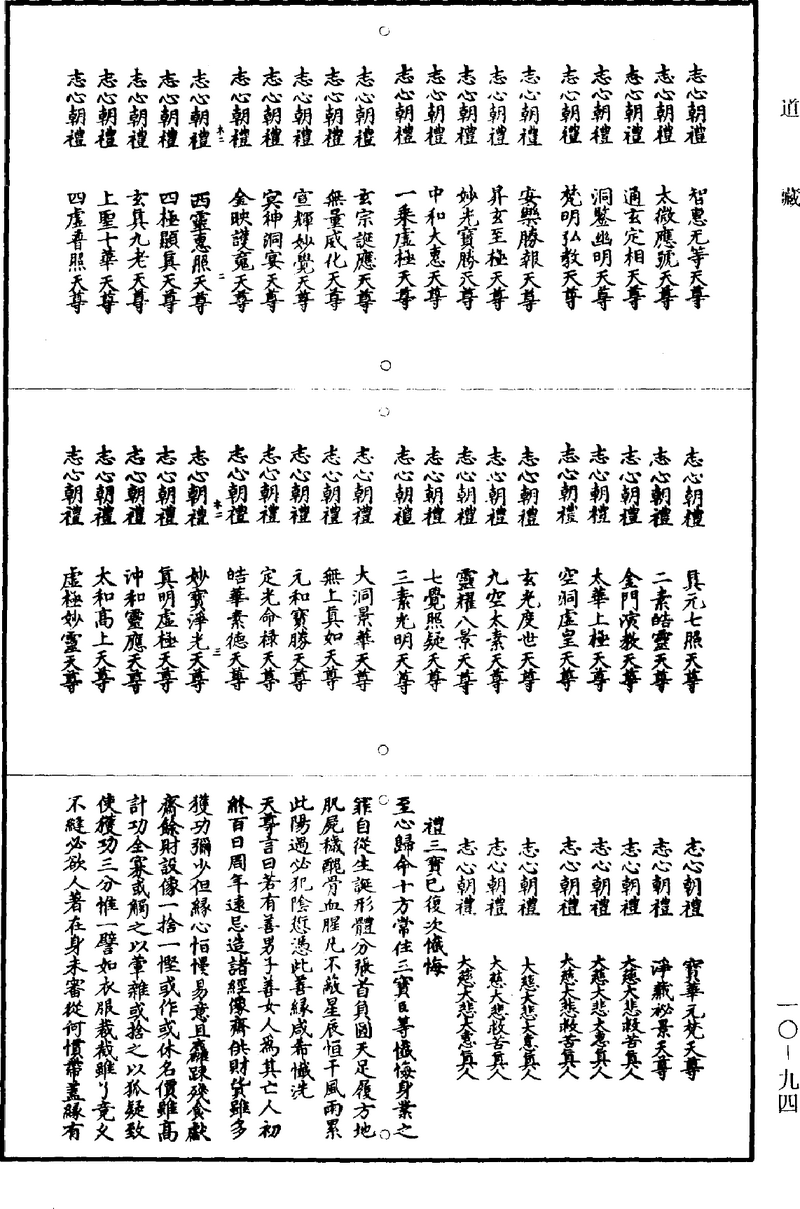 道藏
志心朝禮 智惠无等天尊
志心朝禮 太微應號天尊
志心朝禮 通玄定相天尊
志心朝禮 洞鑒幽明天尊
志心朝禮 梵明弘教天尊
志心朝禮 安樂勝報天尊
志心朝禮 昇玄至極天尊
志心朝禮 妙光寶勝天尊
志心朝禮 中和大惠天尊
志心朝禮 一乘虛極天尊
志心朝禮 玄宗誕應天尊
志心朝禮 無量威化天尊
志心朝禮 宣輝妙覺天尊
志心朝禮 冥神洞宴天尊
志心朝禮 金映護寬天尊
志心朝禮 西靈惠照天尊
志心朝禮 四極顯真天尊
志心朝禮 玄真九老天尊
志心朝禮 上聖十華天尊
志心朝禮 四虛普照天尊
志心朝禮 真元七照天尊
志心朝禮 二素皓靈天尊
志心朝禮 金門演教天尊
志心朝禮 太華上極天尊
志心朝禮 空洞虛皇天尊
志心朝禮 玄光度世天尊
志心朝禮 九空太素天尊
志心朝禮 靈耀八景天尊
志心朝禮 七覺照疑天尊
志心朝禮 三素光明天尊
志心朝禮 大洞景華天尊
志心朝禮 無上真如天尊
志心朝禮 元和寶勝天尊
志心朝禮 定光命祿天尊
志心朝禮 皓華素德天尊
志心朝禮 妙寶淨光天尊
志心朝禮 真明虛極天尊
志心朝禮 沖和靈應天尊
志心朝禮 太和高上天尊
志心朝禮 虛極妙靈天尊
志心朝禮 寶華元梵天尊
志心朝禮 淨藏祕景天尊
志心朝禮 大慈大悲救苦真人
志心朝禮 大慈大悲大惠真人
志心朝禮 大慈大悲救苦真人
志心朝禮 大慈大悲大惠真人
志心朝禮 大慈大悲救苦真人
志心朝禮 大慈大悲大惠真人
禮三寶已復次懺悔
至心歸命十方常住三寶臣等懺悔身業之
罪自從生誕形體分張首負圓天足履方地
肌屍穢醜骨血腥凡不蔽星辰恒干風雨累
此陽過必犯陰愆憑此善緣咸希懺洗
天尊言曰若有善男子善女人為其亡人初
終百日周年遠忌造諸經像齋供財貨雖多
獲功彌少但緣心怕慢易意且麤踈殘食獻
齋餘財設像一捨一慳或作或休名價雖高
計功全寡或觸之以葷雜或捨之以狐疑致
使獲功三分惟一譬如衣服裁裁雖了竟又
不縫必欲人著在身未審從何慣帶蓋緣有
一〇-九四